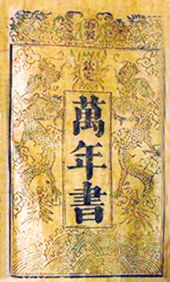 欽定
萬年書